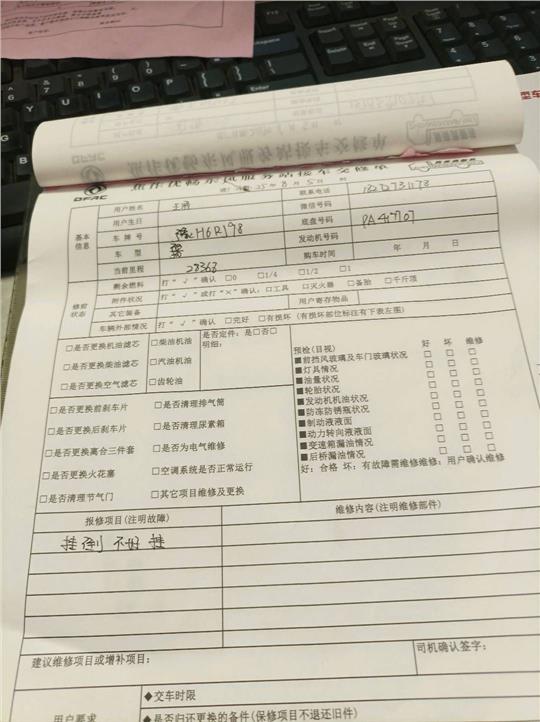 DFAC
焦作优畅东风服务站接车交修单
25年8月5日 时
基本信息
用户姓名 王 联系电话
用户生日 微信号码
车牌号 豫H6R198 底盘号码 PA47707
车型 发动机号码
当前里程 28368 购车时间 年 月 日
修前状态
剩余燃料 打“√”确认 □0 □1/4 □1/2 □1
附件状况 打“√”或打“×”确认：□工具 □灭火器 □备胎 □千斤顶
其它装备 用户寄存物品
车辆外部情况 打“√”确认 □完好 □有损坏（有损坏部位标注有下表左图）
□是否更换机油滤芯 □柴油机油 是否定件：是□否□
明细：
□是否更换柴油滤芯 □汽油机油
□是否更换空气滤芯 □齿轮油
□是否更换前刹车片 □是否清理排气筒
□是否更换后刹车片 □是否清理尿素箱
□是否更换离合三件套 □是否为电气维修
□是否更换火花塞 □空调系统是否正常运行
□是否清理节气门 □其它项目维修及更换
预检(目视) 好 坏 维修
■前挡风玻璃及车门玻璃状况 □ □ □
■灯具情况 □ □ □
■油量状况 □ □ □
■轮胎状况 □ □ □
■发动机机油状况 □ □ □
■防冻防锈瓶状况 □ □ □
■制动液液面 □ □ □
■动力转向液液面 □ □ □
■变速箱漏油情况 □ □ □
■后桥漏油情况 □ □ □
好：合格 坏：有故障需维修维修：用户确认维修
报修项目(注明故障) 维修内容(注明维修部件)
挂倒不好挂
建议维修项目或增补项目： 司机确认签字：
用户要求
◆交车时限
◆是否归还更换的备件(保修项目不退还旧件)